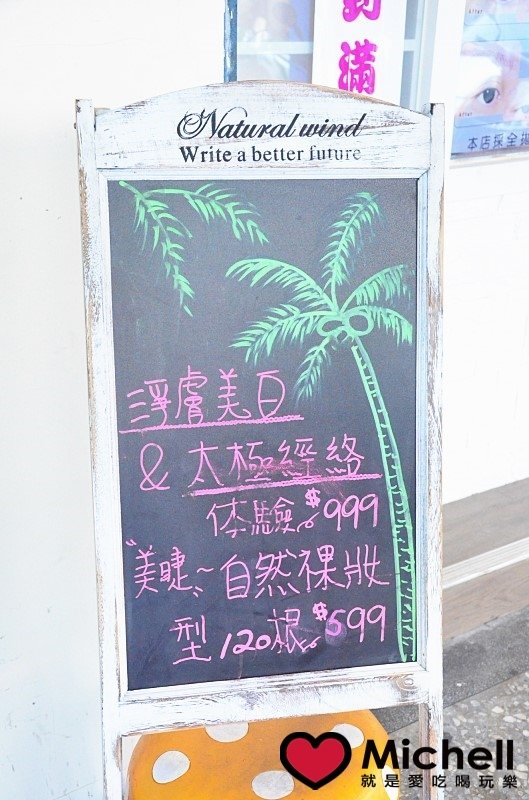 滿
本店採全
Natural wind
Write a better future
淨膚美白
& 太極經絡
体驗 $999
"美睫~自然裸妝
型120根 $599
Michell
就是愛吃喝玩樂